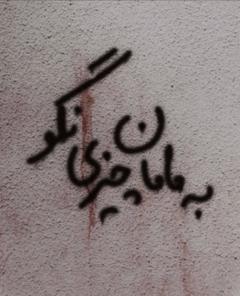 به مامان چیزی نگو